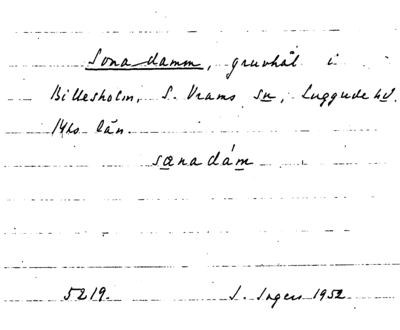 Sona damm, gruvhål i
Billesholm, S. Vrams sn, Luggude hd.
Mhs län.
sænadám
5219. S. Ingers 1952